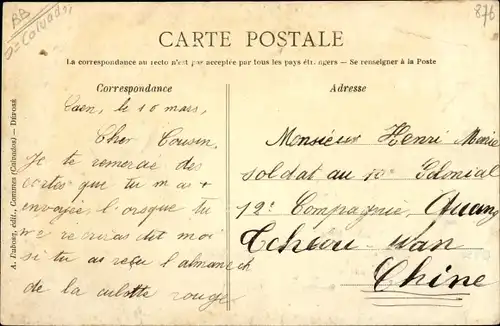 BB
D=Calvados
876
CARTE POSTALE
La correspondance au recto n'est pas acceptée par tous les pays étrangers — Se renseigner à la Poste
Correspondance
Caen, le 10 mars,
Cher Cousin,
Je te remercie des
cartes que tu m a
envoyée, lorsque tu
me recriras dit moi
si tu as reçu l'almanach
de la culotte rouge
Adresse
Monsieur Henri Marie
soldat au 10e Colonial
12e Compagnie, Quang
Tcheou-Wan
Chine
A. Dubosq, édit., Commes (Calvados) — DÉPOSÉ